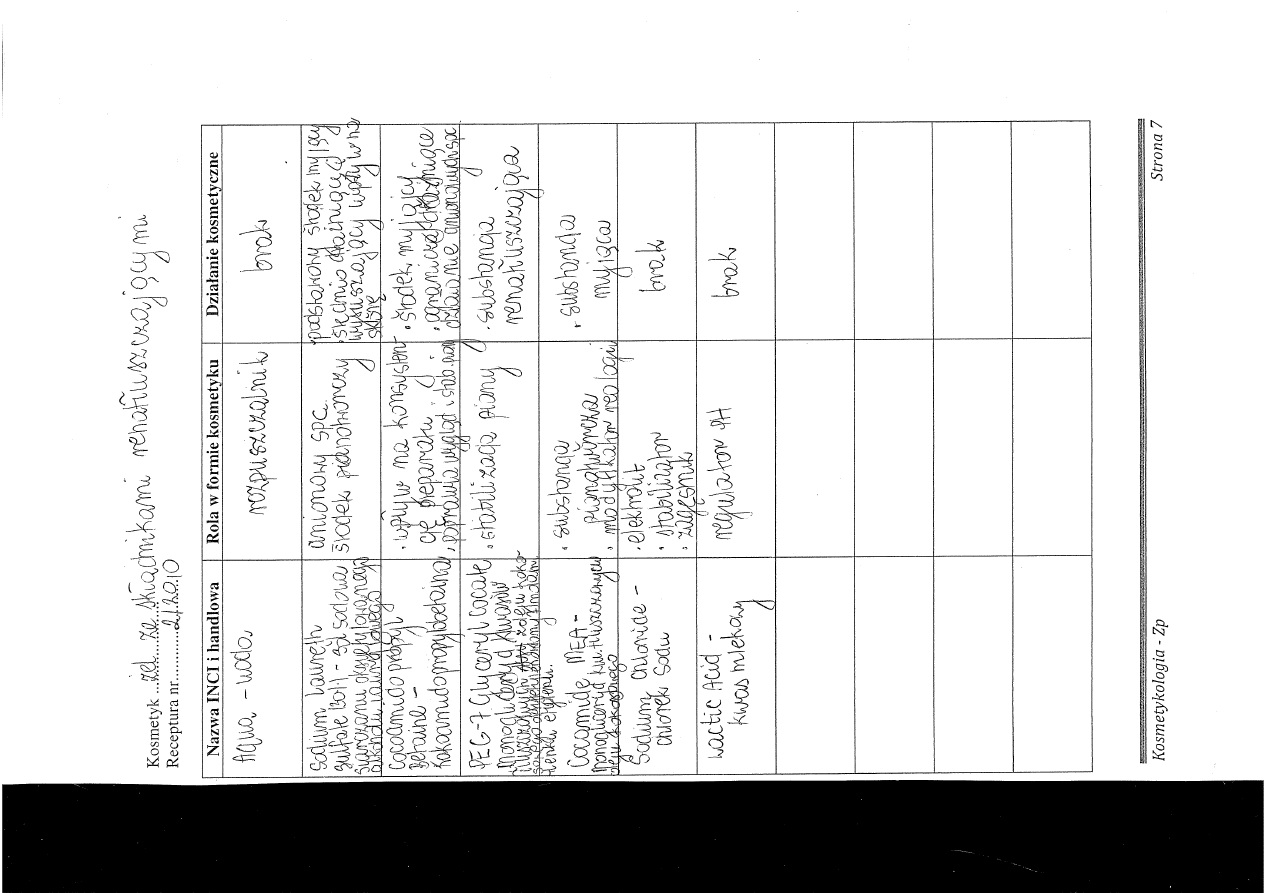 Kosmetyk ...żel ze składnikami renatłuszczającymi
Receptura nr............2.1.2010
Nazwa INCI i handlowa
Rola w formie kosmetyku
Działanie kosmetyczne
Aqua - woda
rozpuszczalnik
brak
Sodium Laureth
sulfate
- sól sodowa
siarczanu
anionowy SPC
środek pianotwórczy
podstawowy środek myjący
średnio drażniące
wysuszający wpływ na
skórę
Cocamidopropyl
Betaine -
kokoamidopropylobetaina
• wpływ na konsysten-
cję preparatu
• poprawia wygląd i stab. pian
• środek myjący
• ogranicza drażniące
działanie anionowych spc
PEG-7 Glyceryl Cocoate
Monogliceryd kwasów
tłuszczowych
oleju koko-
tlenku etylenu.
• stabilizacja piany
• substancja
renatłuszczająca
Cocamide MEA -
kw. tłuszczowych
oleju kokosowego
• substancja
pianotwórcza
• modyfikator reologii
• substancja
myjąca
Sodium chloride -
chlorek sodu
• elektrolit
• stabilizator
• zagęstnik
brak
Lactic Acid -
kwas mlekowy
regulator pH
brak
Kosmetykologia - Zp
Strona 7